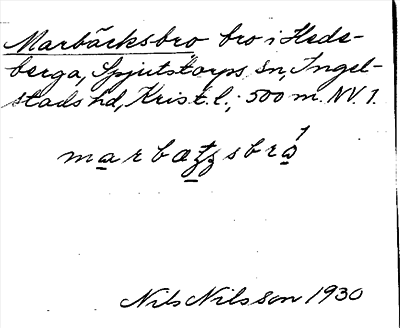 Marbäcksbro bro i Hede-
berga, Spjutstorps sn, Ingel-
stads hd, Krist. l.; 500 m. NV. 1.
Nils Nilsson 1930